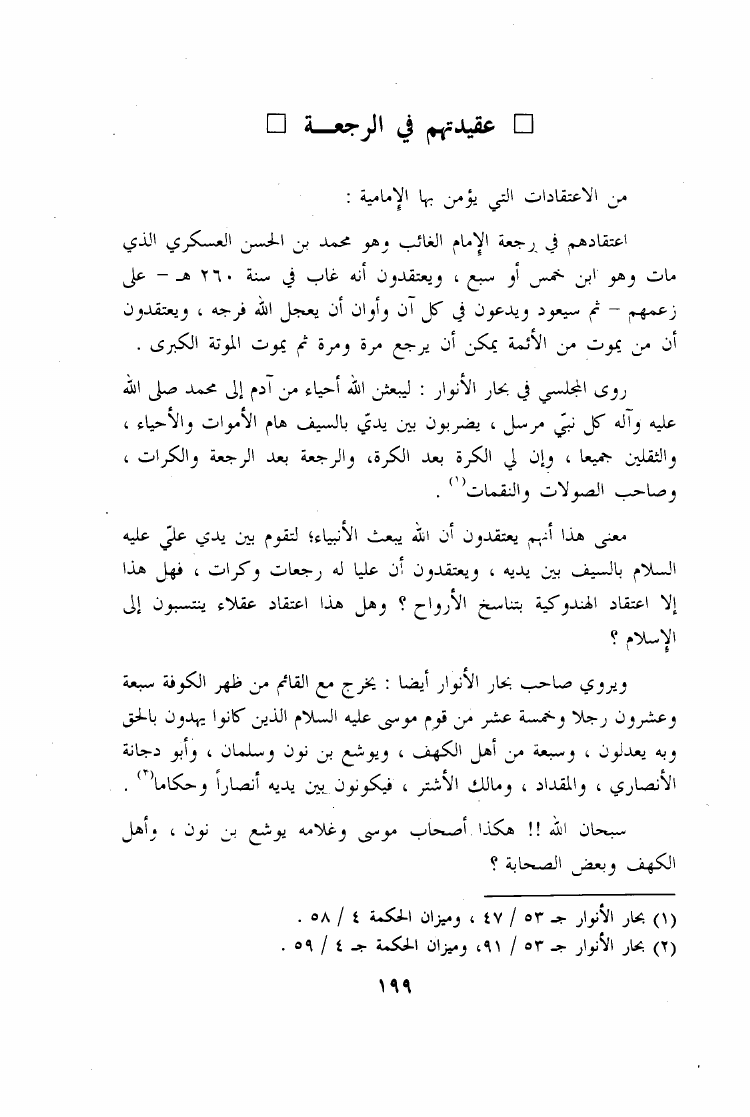 □ عقيدتهم في الرجعــة □
من الاعتقادات التي يؤمن بها الإمامية :
اعتقادهم في رجعة الإمام الغائب وهو محمد بن الحسن العسكري الذي
مات وهو ابن خمس أو سبع ، ويعتقدون أنه غاب في سنة ٢٦٠ هـ – على
زعمهم – ثم سيعود ويدعون في كل آن وأوان أن يعجل الله فرجه ، ويعتقدون
أن من يموت من الأئمة يمكن أن يرجع مرة ومرة ثم يموت الموتة الكبرى .
روى المجلسي في بحار الأنوار : ليبعثن الله أحياء من آدم إلى محمد صلى الله
عليه وآله كل نبيّ مرسل ، يضربون بين يديّ بالسيف هام الأموات والأحياء ،
والثقلين جميعا ، وإن لي الكرة بعد الكرة، والرجعة بعد الرجعة والكرات ،
وصاحب الصولات والنقمات(١) .
معنى هذا أنهم يعتقدون أن الله يبعث الأنبياء؛ لتقوم بين يدي عليّ عليه
السلام بالسيف بين يديه ، ويعتقدون أن عليا له رجعات وكرات ، فهل هذا
إلا اعتقاد الهندوكية بتناسخ الأرواح ؟ وهل هذا اعتقاد عقلاء ينتسبون إلى
الإسلام ؟
ويروي صاحب بحار الأنوار أيضا : يخرج مع القائم من ظهر الكوفة سبعة
وعشرون رجلا وخمسة عشر من قوم موسى عليه السلام الذين كانوا يهدون بالحق
وبه يعدلون ، وسبعة من أهل الكهف ، ويوشع بن نون وسلمان ، وأبو دجانة
الأنصاري ، والمقداد ، ومالك الأشتر ، فيكونون بين يديه أنصاراً وحكاما(٢) .
سبحان الله !! هكذا أصحاب موسى وغلامه يوشع بن نون ، وأهل
الكهف وبعض الصحابة ؟
(١) بحار الأنوار جـ ٥٣ / ٤٧ ، وميزان الحكمة ٤ / ٥٨ .
(٢) بحار الأنوار جـ ٥٣ / ٩١، وميزان الحكمة جـ ٤ / ٥٩ .
١٩٩